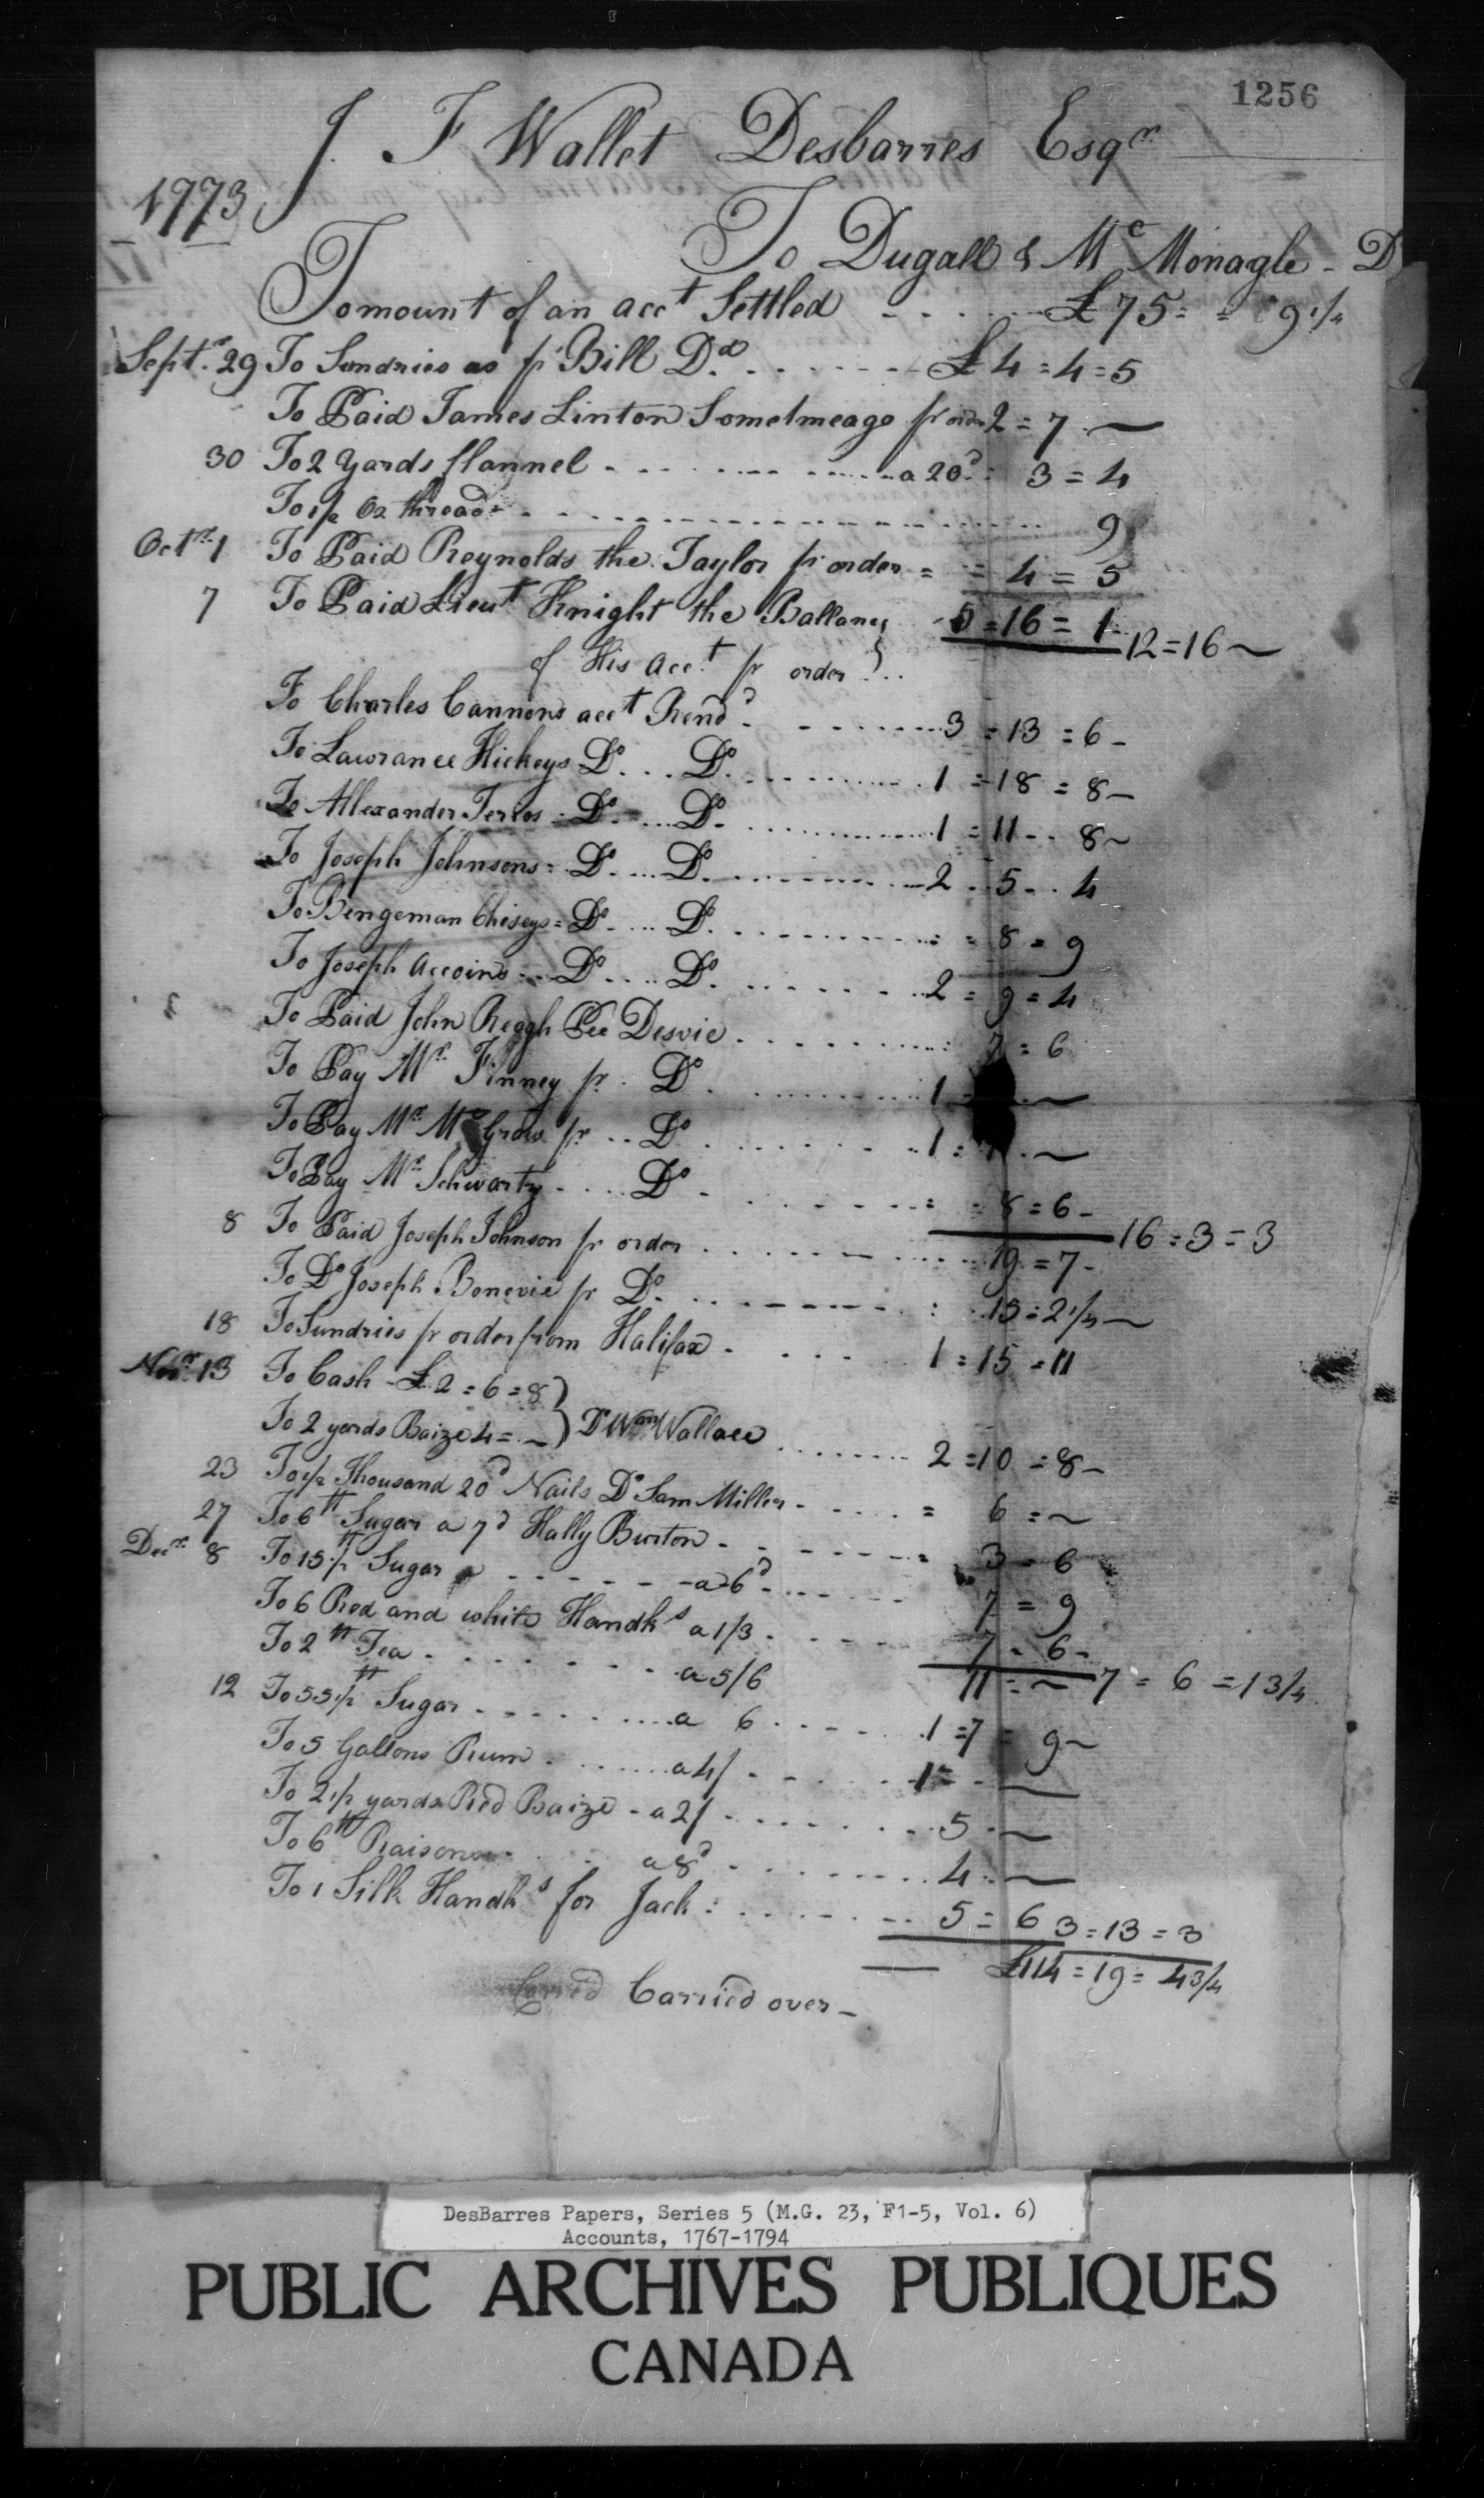 1256
J. F Wallet Desbarres Esqr.
1773
To Dugall & Mc Monagle - D
To mount of an acct Settled - - - - £75 = = 9 1/4
Septr. 29 To Sundries as pr Bill Dd. - - - - £4 = 4 = 5
To Paid James Linton pr order 2 = 7 —
30 To 2 Yards flannel - - - - a 20d = 3 = 4
To 1/2 Oz thread - - - - 9
Octr. 1 To Paid Reynolds the Taylor pr order = = 4 = 5
7 To Paid Lieut Knight the Ballance 5 = 16 = 1 12 = 16 ~
of His acct. pr order } ..
To Charles Cannons acct Rend. - - - - 3 = 13 = 6 -
To Lawrance Hickeys Do. ... Do. - - - - 1 = 18 = 8 -
To Allexander = Do. ... Do. - - - - 1 = 11 - . 8 ~
To Joseph Johnsons = Do. ... Do. - - - - 2 . 5 - . 4
To Bengeman Chiseys = Do. ... Do. - - - - = 8 = 9
To Joseph Accoins = Do. ... Do. - - - - 2 = 9 = 4
To Paid John Reagh Pee Desvie - - - - : 7 : 6
To Pay Mr. Finney pr. Do - - - - 1 —
To Pay Mr. Mc Graw pr .. Do - - - - 1 : 11 . —
To Pay Mr. Schwartz - ... Do - - - - = 8 = 6 - 16 = 3 = 3
8 To Paid Joseph Johnson pr order - - - - 19 = 7 -
To Do Joseph Bonevie pr Do. - - - - : 15 = 2 1/4 —
18 To Sundries pr order from Halifax - - - - 1 = 15 = 11
Novr. 13 To Cash £2 = 6 = 8 }
To 2 yards Baize 4 = ~ } Dd Wm Wallace - - - - 2 = 10 = 8 -
23 To 1/2 Thousand 20d Nails Dd Sam Miller - - - - = 6 = ~
27 To 6 tt Sugar a 7d Hally Burton - - - - 3 = 6
Decr. 8 To 15 1/2 tt Sugar a - - - - a 6d - - - - 7 = 9
To 6 Red and white Handks a 1/3 - - - - 7 = 6 -
To 2 tt Tea - - - - a 5/6 11 = ~ 7 = 6 = 1 3/4
12 To 55 1/2 tt Sugar - - - - a 6 - - - - 1 = 7 = 9 ~
To 5 Gallons Rum - - - - a 4/ - - - - 1 = - —
To 2 1/2 yards Red Baize - a 2/ - - - - 5 - ~
To 6 tt Raisons - - - - a 8d - - - - 4 = ~
To 1 Silk Handks for Jack : - - - - 5 = 6 3 = 13 = 3
£114 = 19 = 4 3/4
Carried Carried over -
DesBarres Papers, Series 5 (M.G. 23, F1-5, Vol. 6)
Accounts, 1767-1794
PUBLIC ARCHIVES PUBLIQUES
CANADA